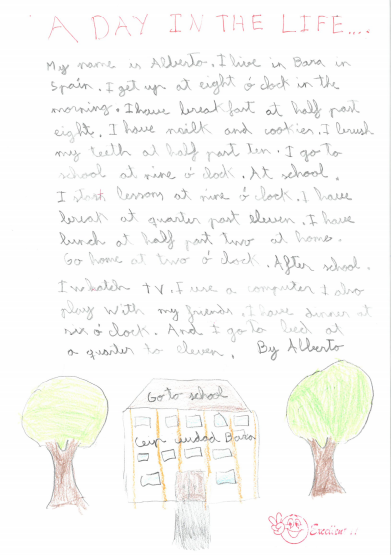 A DAY IN THE LIFE....
My name is Alberto. I live in Bara in
Spain. I get up at eight o'clock in the
morning. I have breakfast at half past
eight. I have milk and cookies. I brush
my teeth at half past ten. I go to
school at nine o'clock. At school.
I start lessons at nine o'clock. I have
break at quarter past eleven. I have
lunch at half past two at home.
Go home at two o'clock. After school.
I whatch TV. I use a computer I also
play with my friends. I have dinner at
six o'clock. And I go to bed at
a quarter to eleven. By Alberto
Go to school
Ceip ciudad Bara
Excellent!!